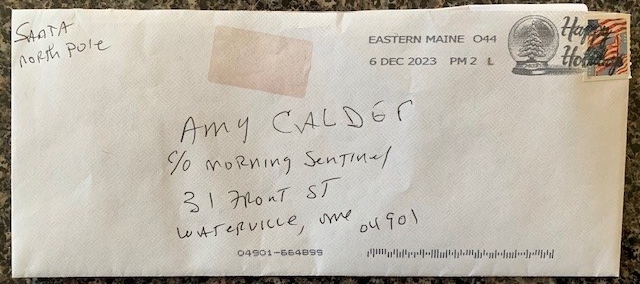 SANTA
North Pole
EASTERN MAINE 044
6 DEC 2023 PM 2 L
Happy
Holidays
AMY CALDER
c/o Morning Sentinel
31 Front ST
Waterville, me 04901
04901-664899